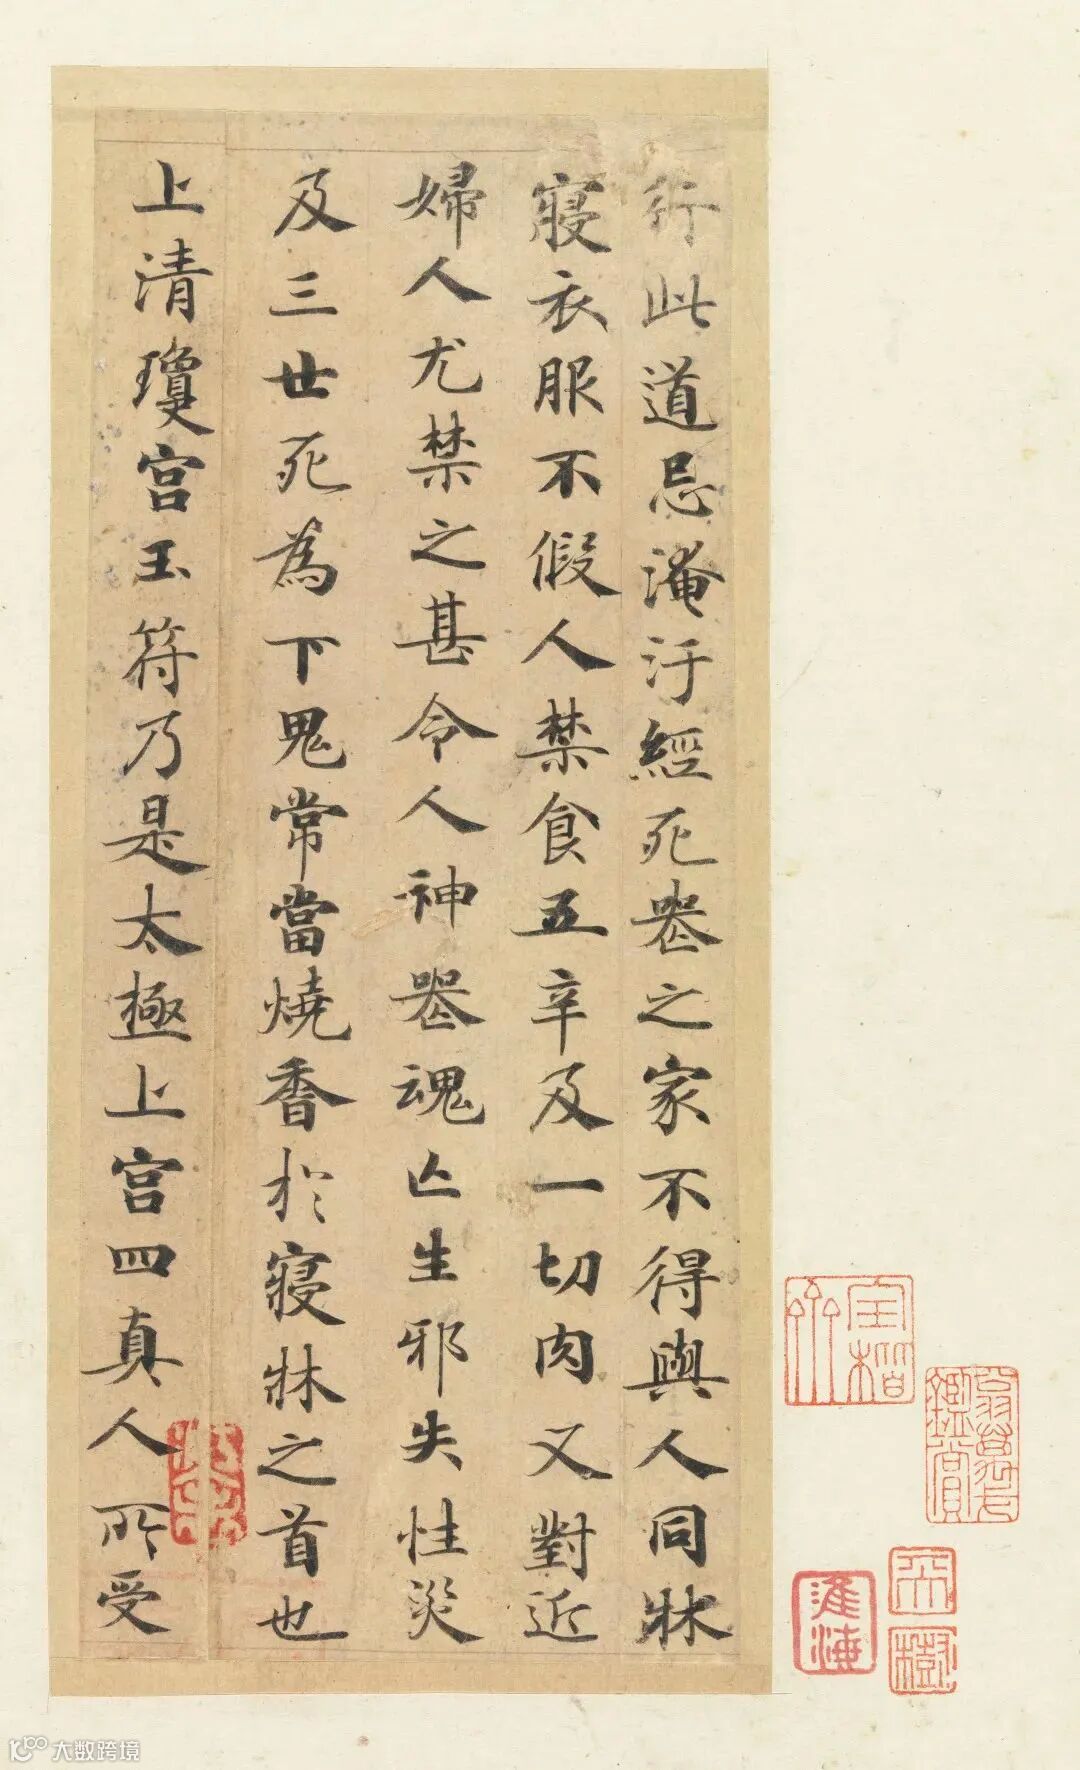 行此道忌淹汙經死䘮之家不得與人同牀
寢衣服不假人禁食五辛及一切肉又對近
婦人尤禁之甚令人神䘮魂亡生邪失性災
及三世死為下鬼常當燒香於寢牀之首也
上清瓊宮玉符乃是太極上宮四真人所受
淮海
玉樹
大数跨境